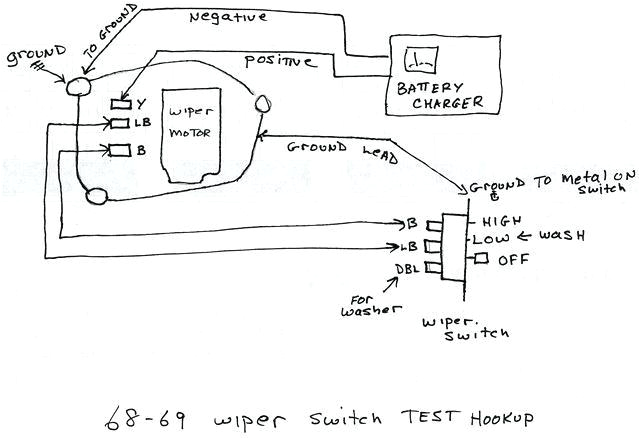 Negative
TO GROUND
ground
Positive
BATTERY
CHARGER
Y
LB
B
Wiper
MOTOR
GROUND LEAD
GROUND TO Metal ON
Switch
B
LB
DBL
HIGH
LOW ← WASH
OFF
FOR
Washer
Wiper.
Switch
68-69 wiper switch TEST HOOKUP